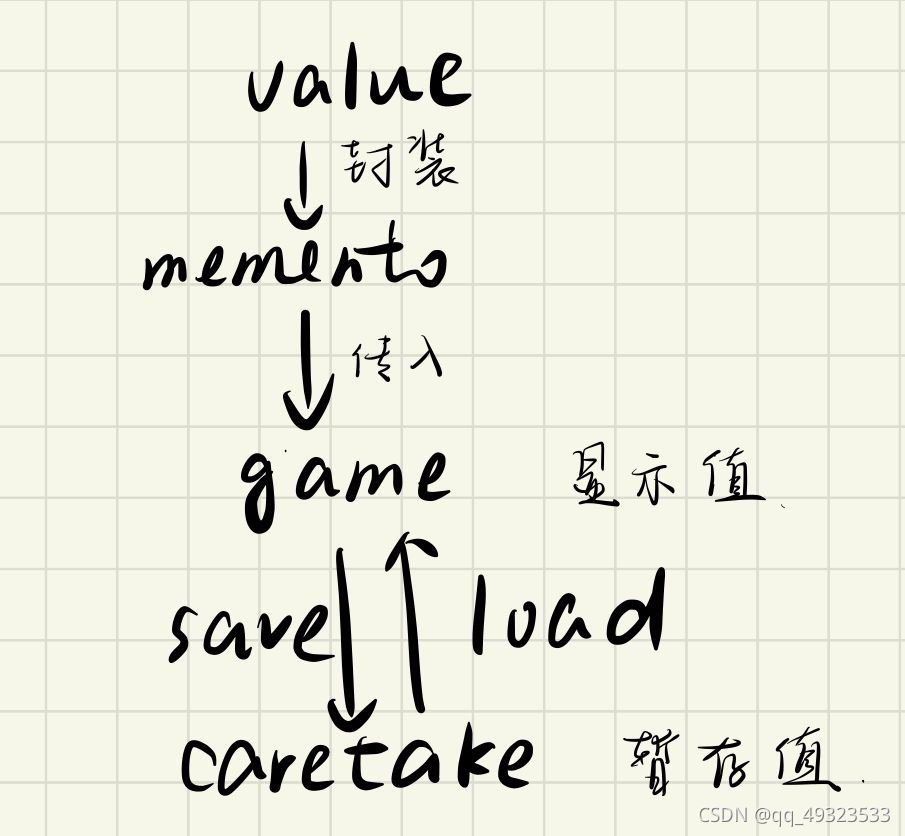 value
封装
memento
传入
game 显示值.
save load
caretake 暂存值.
CSDN @qq_49323533